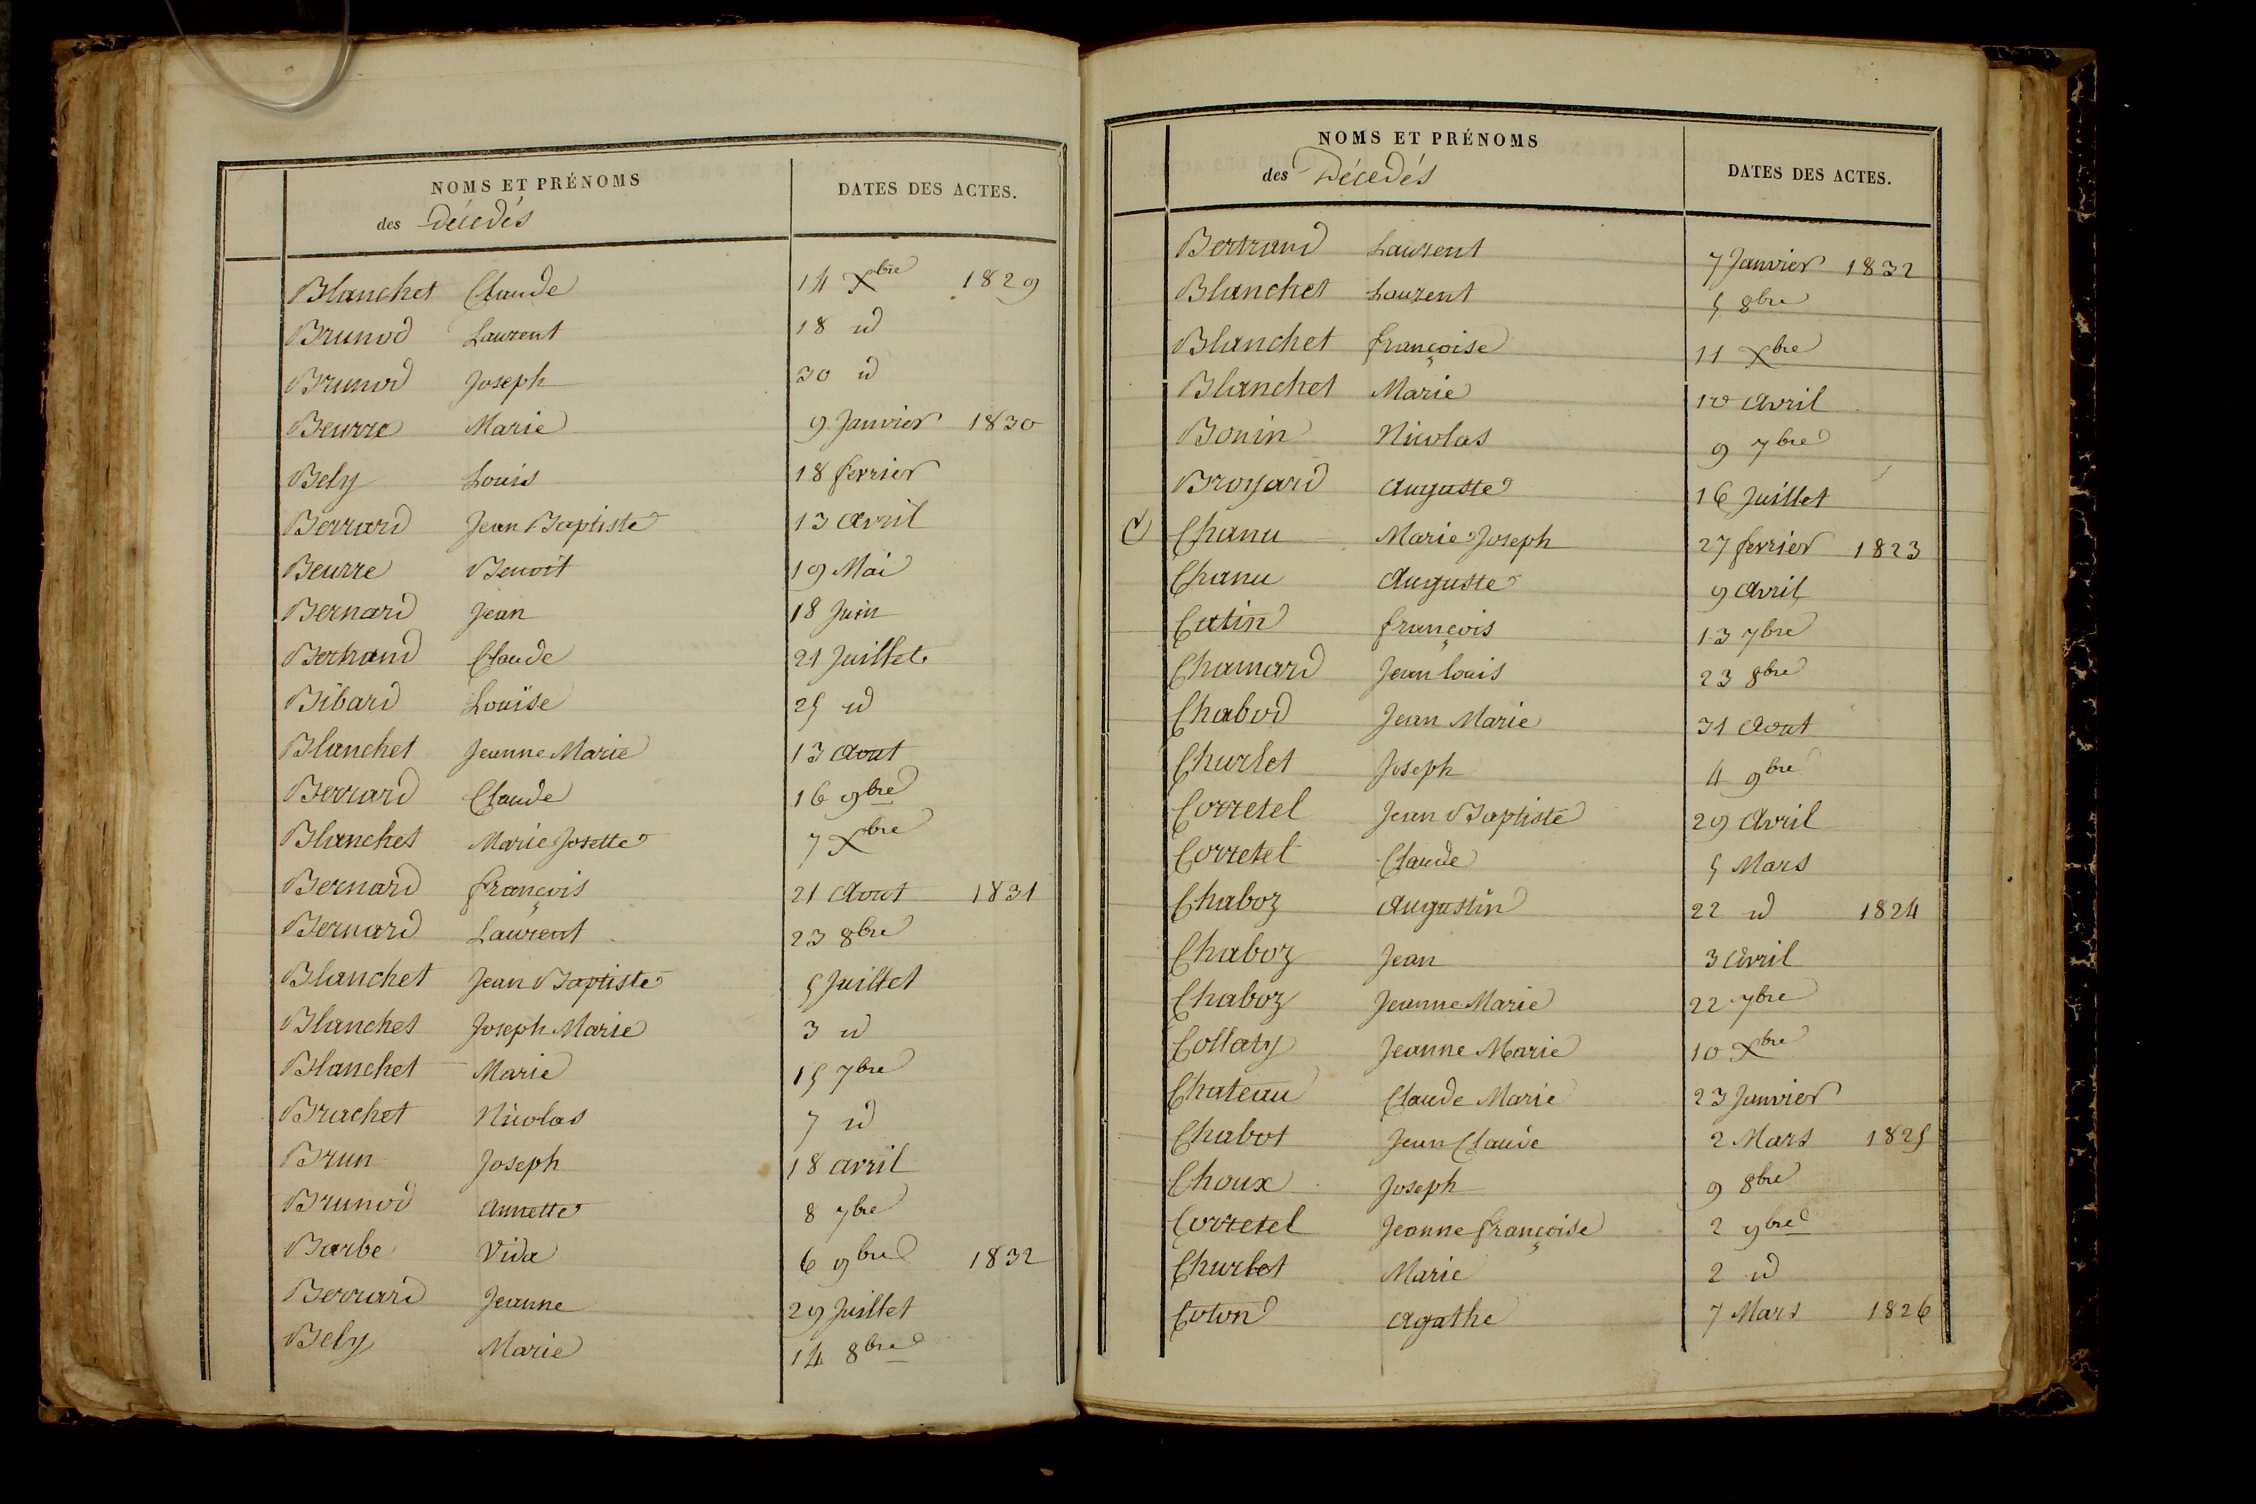 NOMS ET PRÉNOMS
des Décedés
DATES DES ACTES.
Blanchet Claude 14 Xbre 1829
Brunod Laurent 18 id
Brunod Joseph 30 id
Beurre Marie 9 Janvier 1830
Bely Louis 18 fevrier
Berrard Jean Baptiste 13 avril
Beurre Benoit 19 Mai
Bernard Jean 18 Juin
Bertrand Claude 21 Juillet
Bibard Louise 25 id
Blanchet Jeanne Marie 13 Aout
Berrard Claude 16 9bre
Blanchet Marie Josette 7 Xbre
Bernard françois 21 Aout 1831
Bernard Laurent 23 8bre
Blanchet Jean Baptiste 5 Juillet
Blanchet Joseph Marie 3 id
Blanchet Marie 15 7bre
Brachet Nicolas 7 id
Brun Joseph 18 avril
Brunod Annette 8 7bre
Barbe Vida 6 9bre 1832
Berrard Jeanne 29 Juillet
Bely Marie 14 8bre
NOMS ET PRÉNOMS
des Décedés
DATES DES ACTES.
Bertrand Laurent 7 Janvier 1832
Blanchet Laurent 5 8bre
Blanchet françoise 11 Xbre
Blanchet Marie 10 avril
Bonin Nicolas 9 7bre
Broyard Auguste 16 Juillet
C Chanu Marie Joseph 27 fevrier 1823
Chanu Auguste 9 avril
Catin françois 13 7bre
Chamard Jean louis 23 8bre
Chabod Jean Marie 31 Aout
Churlet Joseph 4 9bre
Corretel Jean Baptiste 29 Avril
Corretel Claude 5 Mars
Chaboz Augustin 22 id 1824
Chaboz Jean 3 avril
Chaboz Jeanne Marie 22 7bre
Collaty Jeanne Marie 10 Xbre
Chateau Claude Marie 23 Janvier
Chabot Jean Claude 2 Mars 1825
Choux Joseph 9 8bre
Corretel Jeanne françoise 2 9bre
Churlet Marie 2 id
Coton Agathe 7 Mars 1826